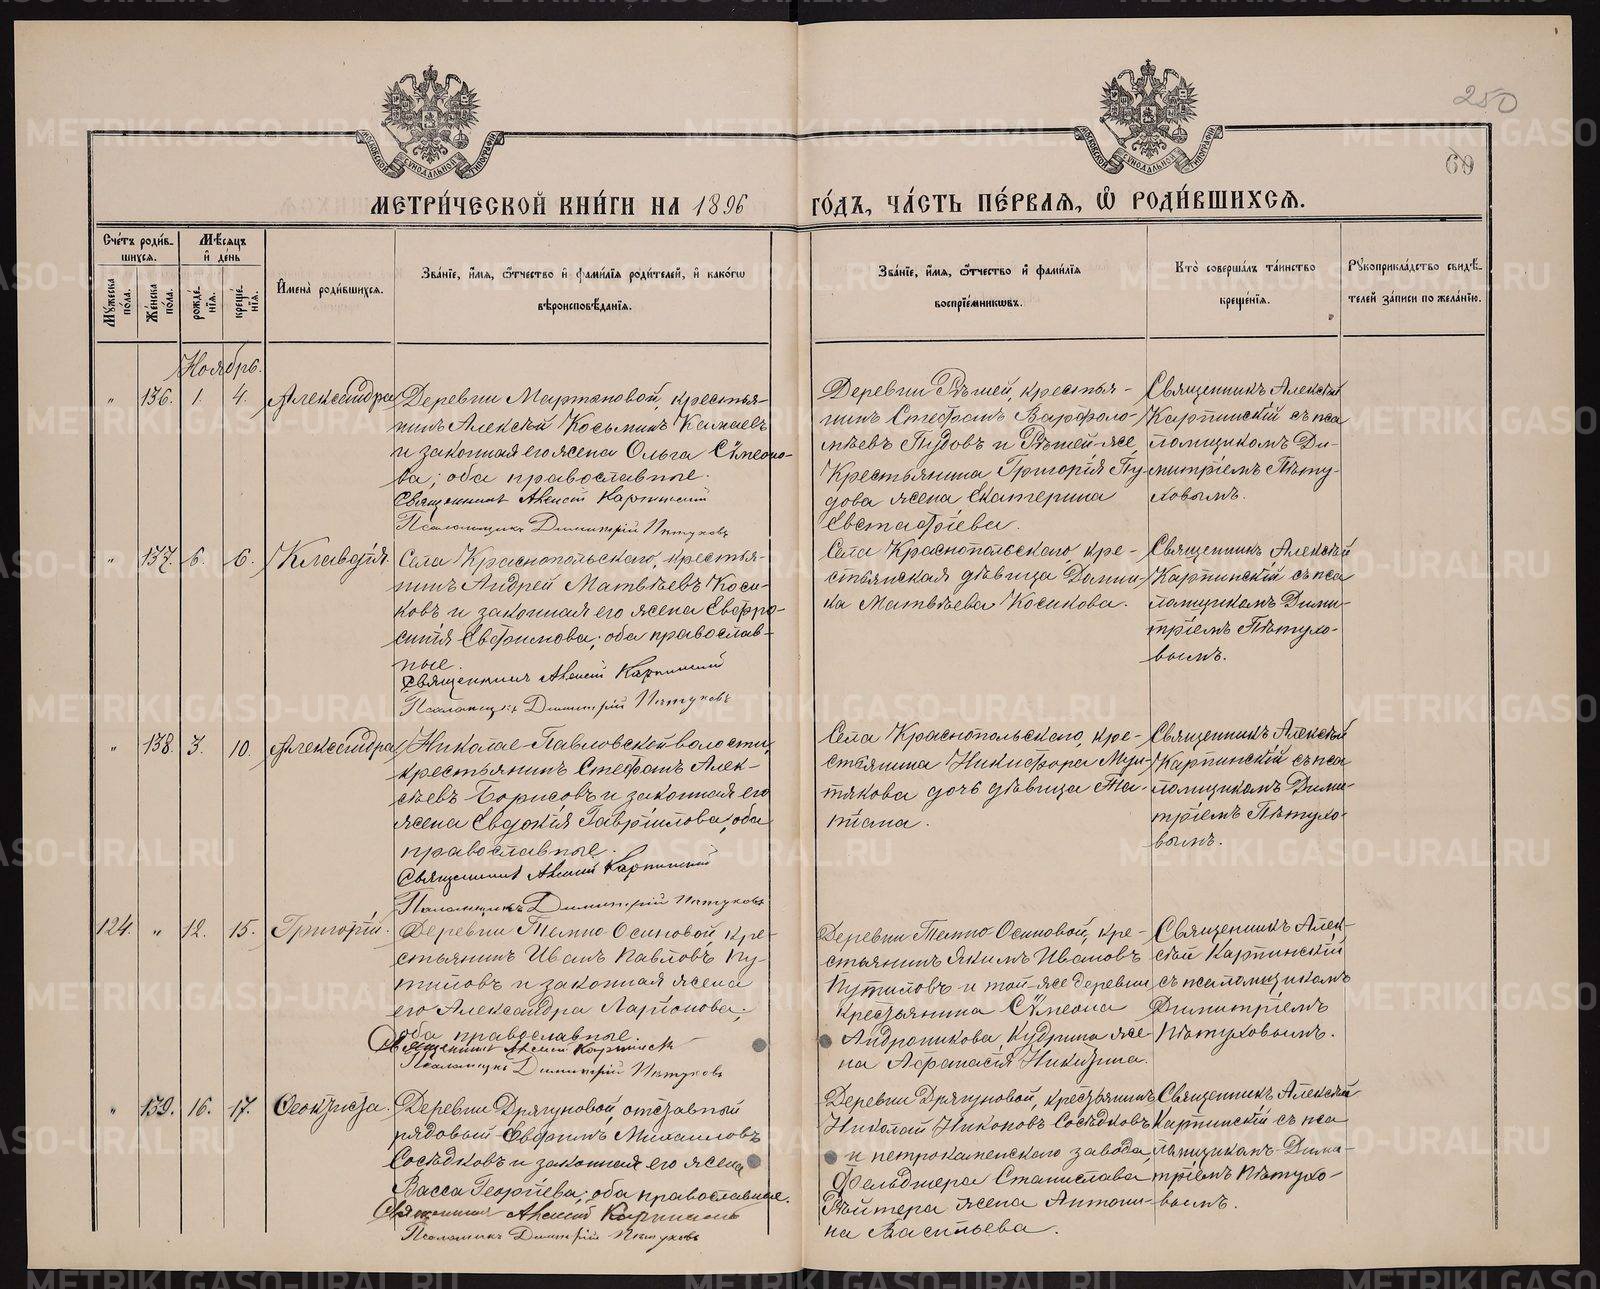 250
69
МЕТРИ́ЧЕСКОЙ КНИ́ГИ НА 1896 ГО́ДЪ, ЧА́СТЬ ПЕ́РВАЯ, Ѡ҆ РОДИ́ВШИХСЯ.
Сче́тъ роди́в-
шихся.
Мѣ́сяцъ
и҆ де́нь
Мꙋ́жеска по́ла.
Же́нска по́ла.
рожде́нїѧ.
креще́нїѧ.
И҆мена̀ роди́вшихся.
Зва́нїе, и҆́мя, ѻ҆́тчество и҆ фами́лїя роди́телей, и҆ како́гѡ
вѣроисповѣ́данїя.
Зва́нїе, и҆́мя, ѻ҆́тчество и҆ фами́лїя
воспрїе́мникѡвъ.
Кто̀ соверша́лъ та́инство
креще́нїя.
Рꙋкоприкла́дство свидѣ́-
телей за́писи по жела́нїю.
Ноябрь.
" 136. 1. 4. Александра
Деревни Мартяновой, крестья-
нинъ Алексѣй Косьминъ Камаевъ
и законная его жена Ольга Сѵмеоно-
ва; оба православные.
Священникъ Алексій Карпинскій
Псаломщикъ Димитрій Пѣтуховъ
Деревни Рѣшей, крестья-
нинъ Стефанъ Варфоло-
мѣевъ Пудовъ и Рѣшей-же
Крестьянина Григорія Пу-
дова жена Екатерина
Евстафіева.
Священникъ Алексѣй
Карпинскій съ пса
ломщикомъ Ди-
митріемъ Пѣту-
ховымъ.
" 137. 6. 6. Клавдія.
Села Краснопольскаго, крестья-
нинъ Андрей Матвѣевъ Коси-
ковъ и законная его жена Евфро-
синія Евфимова; оба православ-
ные.
Священникъ Алексій Карпинскій
Псаломщикъ Димитрій Пѣтуховъ
Села Краснопольскаго кре-
стьянская дѣвица Домни-
ка Матвѣева Косикова.
Священникъ Алексѣй
Карпинскій съ пса
ломщикомъ Дими-
тріемъ Пѣтухо-
вымъ.
" 138. 3. 10. Александра
Николае-Павловской волости,
крестьянинъ Стефанъ Алек-
сѣевъ Борисовъ и законная его
жена Евдокія Гавріилова; оба
православные.
Священникъ Алексій Карпинскій
Псаломщикъ Димитрій Пѣтуховъ
Села Краснопольскаго, кре-
стьянина Никифора Мул-
тякова дочь дѣвица Та-
тіана.
Священникъ Алексѣй
Карпинскій съ пса
ломщикомъ Дими-
тріемъ Пѣтухо-
вымъ.
124. " 12. 15. Григорій.
Деревни Темно-Осиновой, кре-
стьянинъ Иванъ Павловъ Пу-
тиловъ и законная жена
его Александра Ларіонова;
оба православные.
Священникъ Алексій Карпинскій
Псаломщикъ Димитрій Пѣтуховъ
Деревни Темно Осиновой, кре-
стьянинъ Якимъ Ивановъ
Путиловъ и той-же деревни
крестьянина Сѵмеона
Андроникова Кудрина же-
на Афанасія Никитина.
Священникъ Алек-
сѣй Карпинскій
съ псаломщикомъ
Димитріемъ
Пѣтуховымъ.
" 139. 16. 17. Ѳеоктиста.
Деревни Дрягуновой, отставный
рядовый Евфимъ Михаиловъ
Сосѣдковъ и законная его жена
Васса Георгіева; оба православные.
Священникъ Алексій Карпинскій
Псаломщикъ Димитрій Пѣтуховъ
Деревни Дрягуновой, крестьянинъ
Николай Никоновъ Сосѣдковъ
и петрокаменскаго завода,
Фельдшера Станислава
Рѣйтера жена Антони-
на Васильева.
Священникъ Алексѣй
Карпинскій съ пса
ломщикомъ Дими-
тріемъ Пѣтухо-
вымъ.